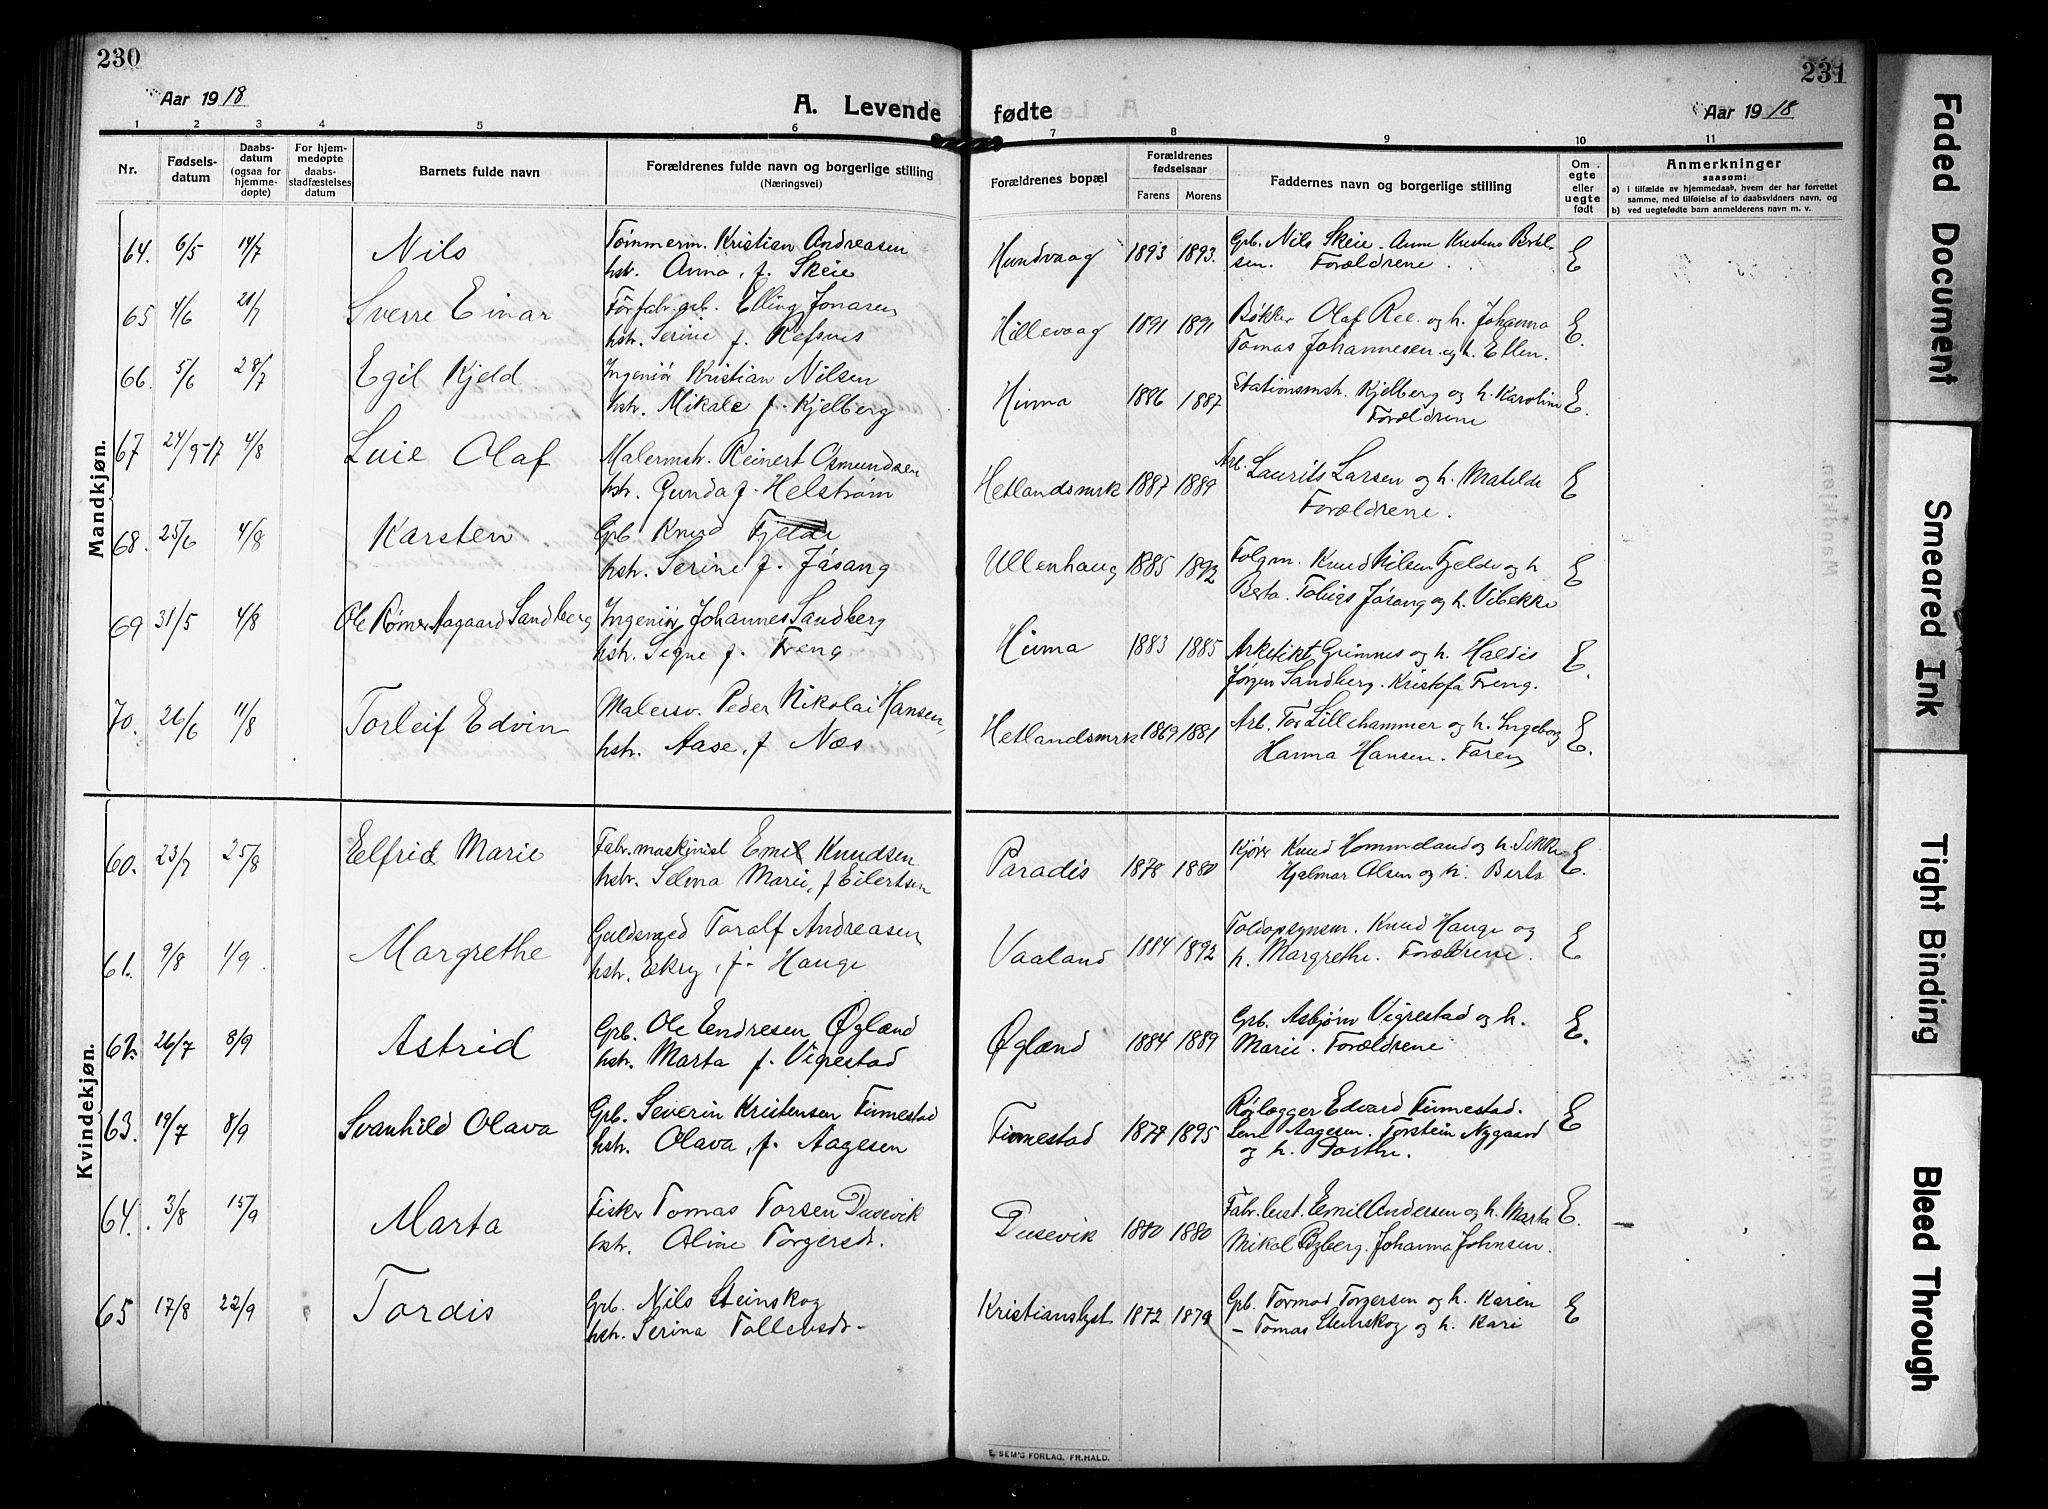 230
231
Aar 1918
A. Levende
fødte
Aar 1918
1 2 3 4 5 6 7 8 9 10 11
Nr.
Fødsels-
datum
Daabs-
datum
(ogsaa for
hjemme-
døpte)
For hjem-
medøpte
daabs-
stadfæstelses
datum
Barnets fulde navn
Forældrenes fulde navn og borgerlige stilling
(Næringsvei)
Forældrenes bopæl
Forældrenes
fødselsaar
Farens Morens
Faddernes navn og borgerlige stilling
Om
egte
eller
uegte
født
Anmerkninger
saasom:
a) i tilfælde av hjemmedaab, hvem der har forrettet
samme, med tilføielse af to daabsvidners navn, og
b) ved uegtefødte barn anmelderens navn m. v.
Mandkjøn.
64. 6/5 14/7 Nils Tømmerm. Kristian Andreasen Hundvaag 1893 1893. Grb. Nils Skeie. Anne Kristens Bertel- E
hstr. Anna, f. Skeie sen. Forældrene.
65 4/6 21/7 Sverre Einar Elling Jonasen Hillevaag 1891 1891 Bøkker Olaf Ree. og h. Johanna E.
hstr. Serine f. Refsnes Tomas Johannesen. og h. Ellen.
66. 5/6 28/7 Egil Kjeld Ingeniør Kristian Nilsen Hinna 1886 1887 Stationsmstr. Kjelberg og h. Karoline E.
hstr. Mikale f. Kjelberg Forældrene
67 24/9-17 4/8 Luie Olaf Malermstr. Reinert Osmundsen Hetlandsmrk 1887 1889 Arb. Laurits Larsen og h. Matilde E
hstr. Gunda f. Helstrøm Forældrene.
68. 25/6 4/8 Karsten Grb Knud Fjelde Ullenhaug 1885 1892 Folgm. Knud Nilsen Fjelde og h E
hstr. Serine f. Jåsang Berta. Tobias Jåsang og h. Vibekke
69 31/5 4/8 Ole Rømer Aagaard Sandberg Ingeniør Johannes Sandberg Hinna 1883 1885 Arkitekt Grimnes og h. Haldis E.
hstr. Signe f. Treng Jørgen Sandberg. Kristofa Treng.
70. 26/6 11/8 Torleif Edvin Malersv. Peder Nikolai Hansen, Hetlandsmrk 1869 1881 Arb. Tor Lillehammer og h. Ingeborg E.
hstr. Aase, f. Næs Hanna Hansen. Faren
Kvindekjøn.
60. 23/7 25/8 Elfrid Marie Fabr.maskinist Emil Knudsen Paradis 1878 1880 Kjører Knud Hommeland og h. Sikke E.
hstr. Selma Marie, f Eilertsen Hjalmar Olsen og h. Berta
61. 9/8 1/9 Margrethe Guldsmed Toralf Andreasen Vaaland 1884 1892 Toldopsynsm. Knud Hauge og E
hstr. f. Hauge h. Margrethe. Forældrene.
62. 26/7 8/9 Astrid Grb. Ole Endresen Øglænd Øglænd 1884 1889 Grb. Asbjørn Vigrestad og h. E.
hstr. Marta f. Vigrestad Marie. Forældrene
63. 19/7 8/9 Svanhild Olava Grb. Severin Kristensen Finnestad Finnestad 1874 1895 Rørlægger Edvard Finnestad. E
hstr. Olava, f. Aagesen Lene Aagesen. Torstein Nygaard
og h. Dorthe.
64. 3/8 15/9 Marta Fisker Tomas Torsen Dusevik Dusevik 1880 1880 Fabr.best. Emil Andersen og h. Marta E.
hstr. Aline Torgersdr. Mikal Johanna Johnsen.
65 17/8 22/9 Tordis Grb. Nils Steinskog Kristianslyst 1872 1879 Grb. Tormod Torgersen og h. Karen E
hstr. Serina Tollevsdr. – Tomas Steinskog og h. Kari
E. SEM'S FORLAG, FR.HALD.
Faded Document
Smeared Ink
Tight Binding
Bleed Through